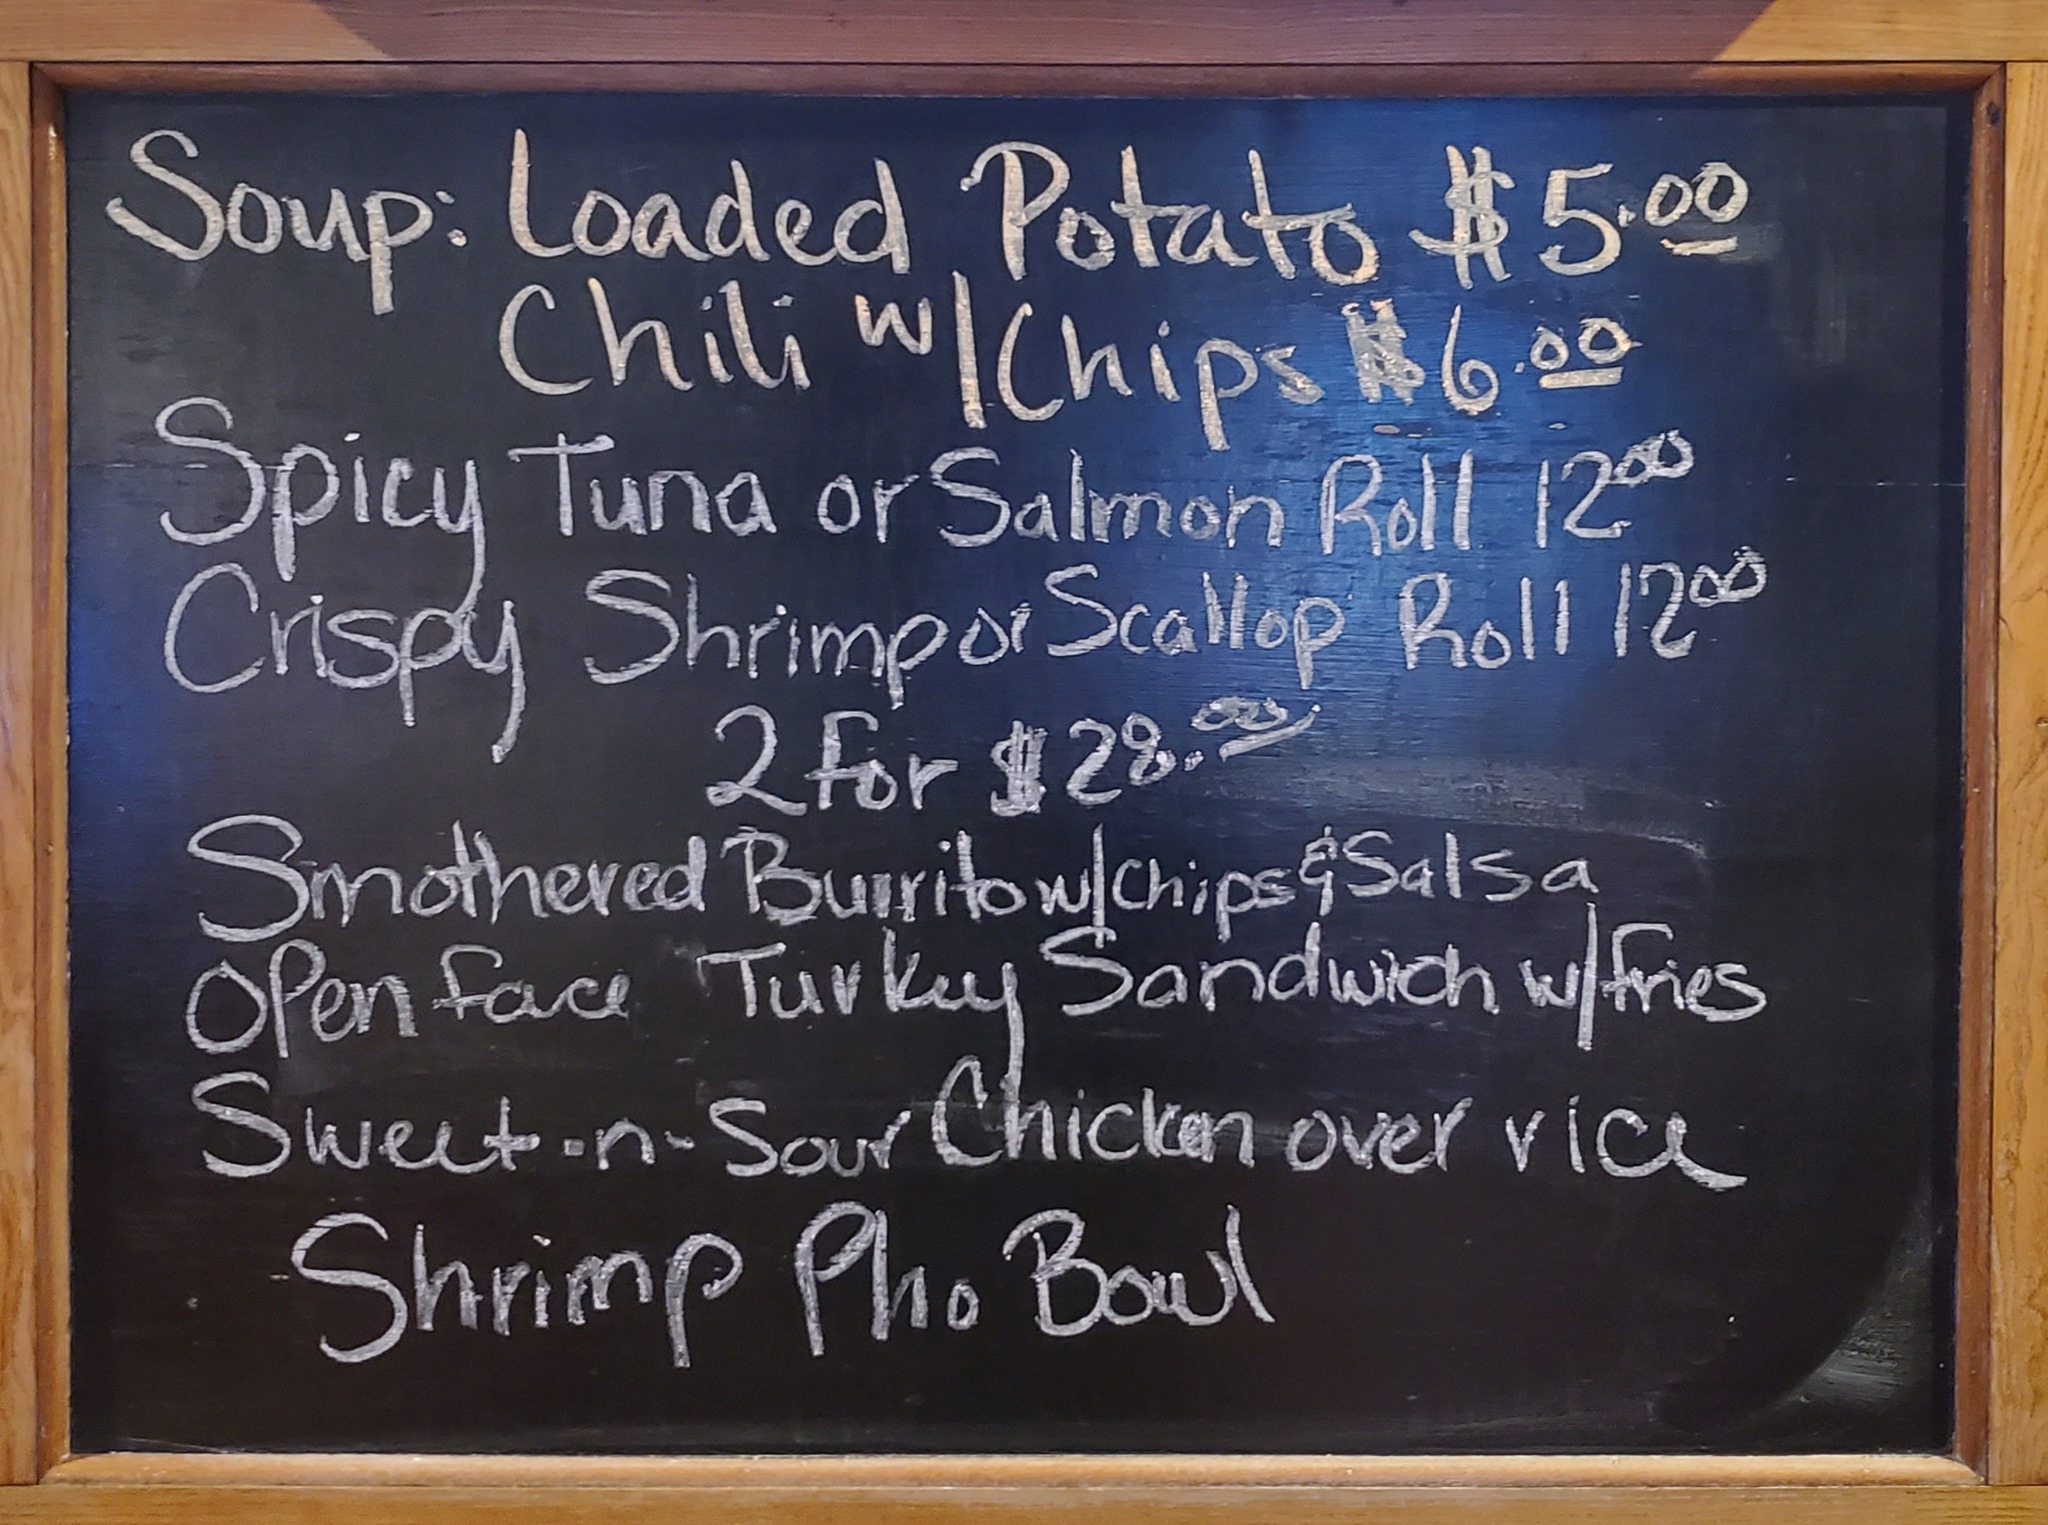 Soup: Loaded Potato $5.00
Chili w/Chips $6.00
Spicy Tuna or Salmon Roll 12.00
Crispy Shrimp or Scallop Roll 12.00
2 for $28.00
Smothered Burrito w/chips & Salsa
Open face Turkey Sandwich w/fries
Sweet-n-Sour Chicken over rice
Shrimp Pho Bowl